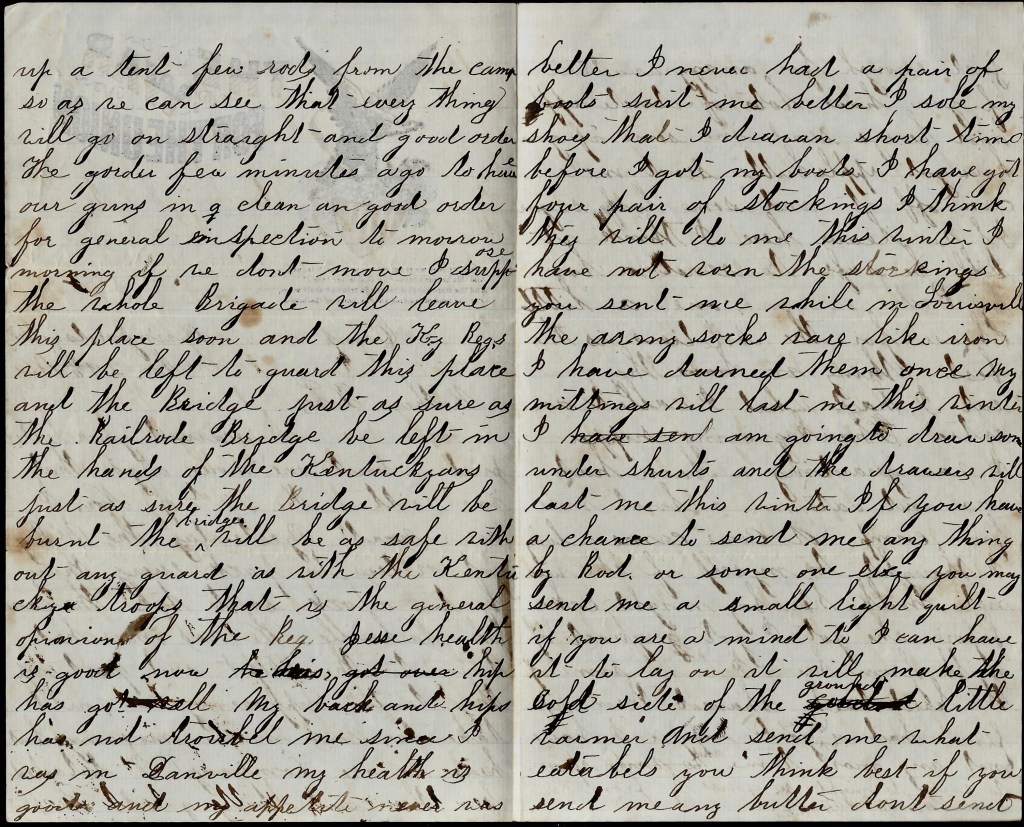 up a tent few rods from the camp
so as we can see that every thing
will go on straight and good order
We gorder few minutes ago to have
our guns in a clean an good order
for general inspection to morrow
morning if we dont move I suppose
the whole Brigade will leave
this place soon and the Ky Regs
will be left to guard this place
and the Bridge just as sure as
the Railrode Bridge be left in
the hands of the Kentuckyans
just as sure the Bridge will be
burnt the bridge will be as safe with
out any guard as with the Kentu
ckye troops that is the general
opinion of the Reg. Jesse health
is good now he has got over his
has got well My back and hips
has not troubel me since I
was in Danville my health is
good and my appetite never was
better I never had a pair of
boots suit me better I sole my
shoes that I drawan short time
before I got my boots I have got
four pair of stockings I think
they will do me this winter I
have not worn the stockings
you sent me while in Louisville
the army socks ware like iron
I have darned them once My
mittings will last me this winter
I have sen am going to draw som
under shurts and the drawers will
last me this winter If you have
a chance to send me any thing
by Rod. or some one else you may
send me a small light quilt
if you are a mind to I can have
it to lay on it will make the
soft side of the ground little
warmer And send me what
eatabels you think best if you
send me any butter dont send